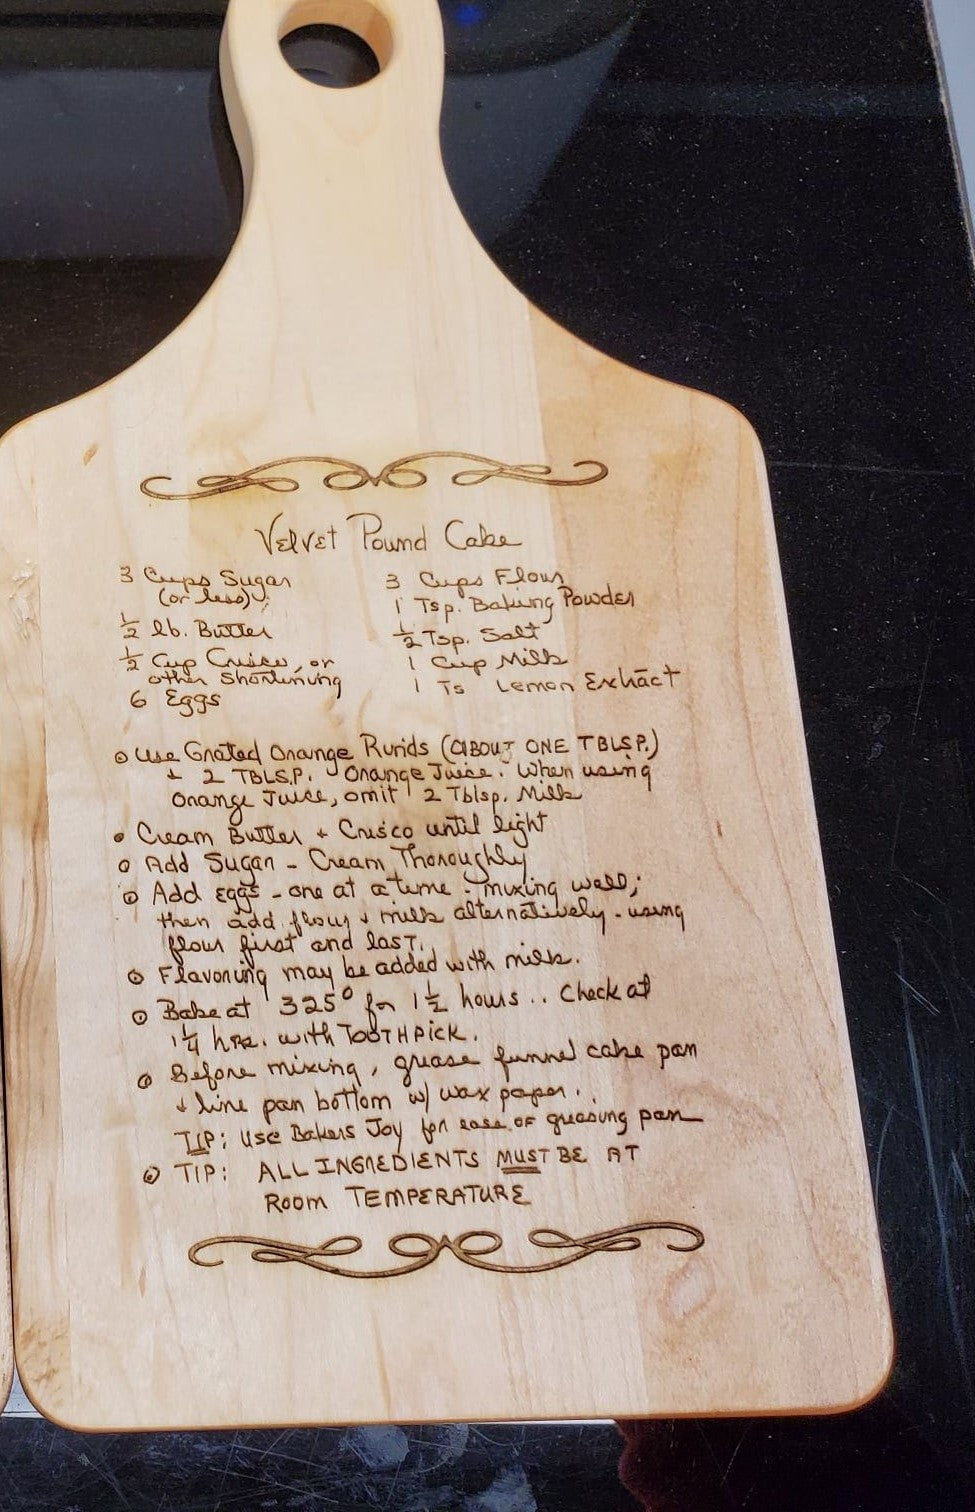 Velvet Pound Cake
3 Cups Sugar
(or less)
1/2 lb. Butter
1/2 Cup Crisco, or
other Shortining
6 Eggs
3 Cups Flour
1 Tsp. Baking Powder
1/2 Tsp. Salt
1 Cup Milk
1 Ts Lemon Extract
Use Grated Orange Rinds (ABOUT ONE TBLSP.)
+ 2 TBLSP. Orange Juice. When using
Orange Juice, omit 2 Tblsp. Milk
Cream Butter + Crisco until light
Add Sugar - Cream Thoroughly
Add eggs - one at a time - mixing well;
then add flour + milk alternatively - using
flour first and last.
Flavoring may be added with milk.
Bake at 325° for 1 1/2 hours .. Check at
1 1/4 hrs. with TOOTHPICK.
Before mixing, grease funnel cake pan
+ line pan bottom w/ wax paper..
TIP: Use Bakers Joy for ease of greasing pan
TIP: ALL INGREDIENTS MUST BE AT
ROOM TEMPERATURE